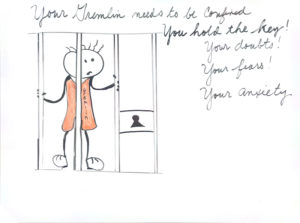 Your Gremlin needs to be confined
You hold the key!
Your doubts!
Your fears!
Your anxiety